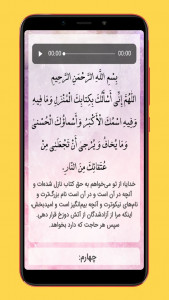 00:00
00:00
بِسْمِ اللَّهِ الرَّحْمَنِ الرَّحِيمِ
اللَّهُمَّ إِنِّي أَسْأَلُكَ بِكِتَابِكَ الْمُنْزَلِ وَمَا فِيهِ
وَفِيهِ اسْمُكَ الْأَكْبَرُ وَأَسْمَاؤُكَ الْحُسْنَى
وَمَا يُخَافُ وَ يُرْجَى أَنْ تَجْعَلَنِي مِنْ
عُتَقَائِكَ مِنَ النَّارِ.
خدایا! از تو می‌خواهم به حق کتاب نازل شده‌ات و
آنچه در آن است و در آن است نام بزرگ‌ترت و
نام‌های نیکوترت و آنچه بیم‌انگیز است و امیدبخش،
اینکه مرا از آزادشدگان از آتش دوزخ قرار دهی.
سپس هر حاجت که دارد بخواهد.
چهارم: